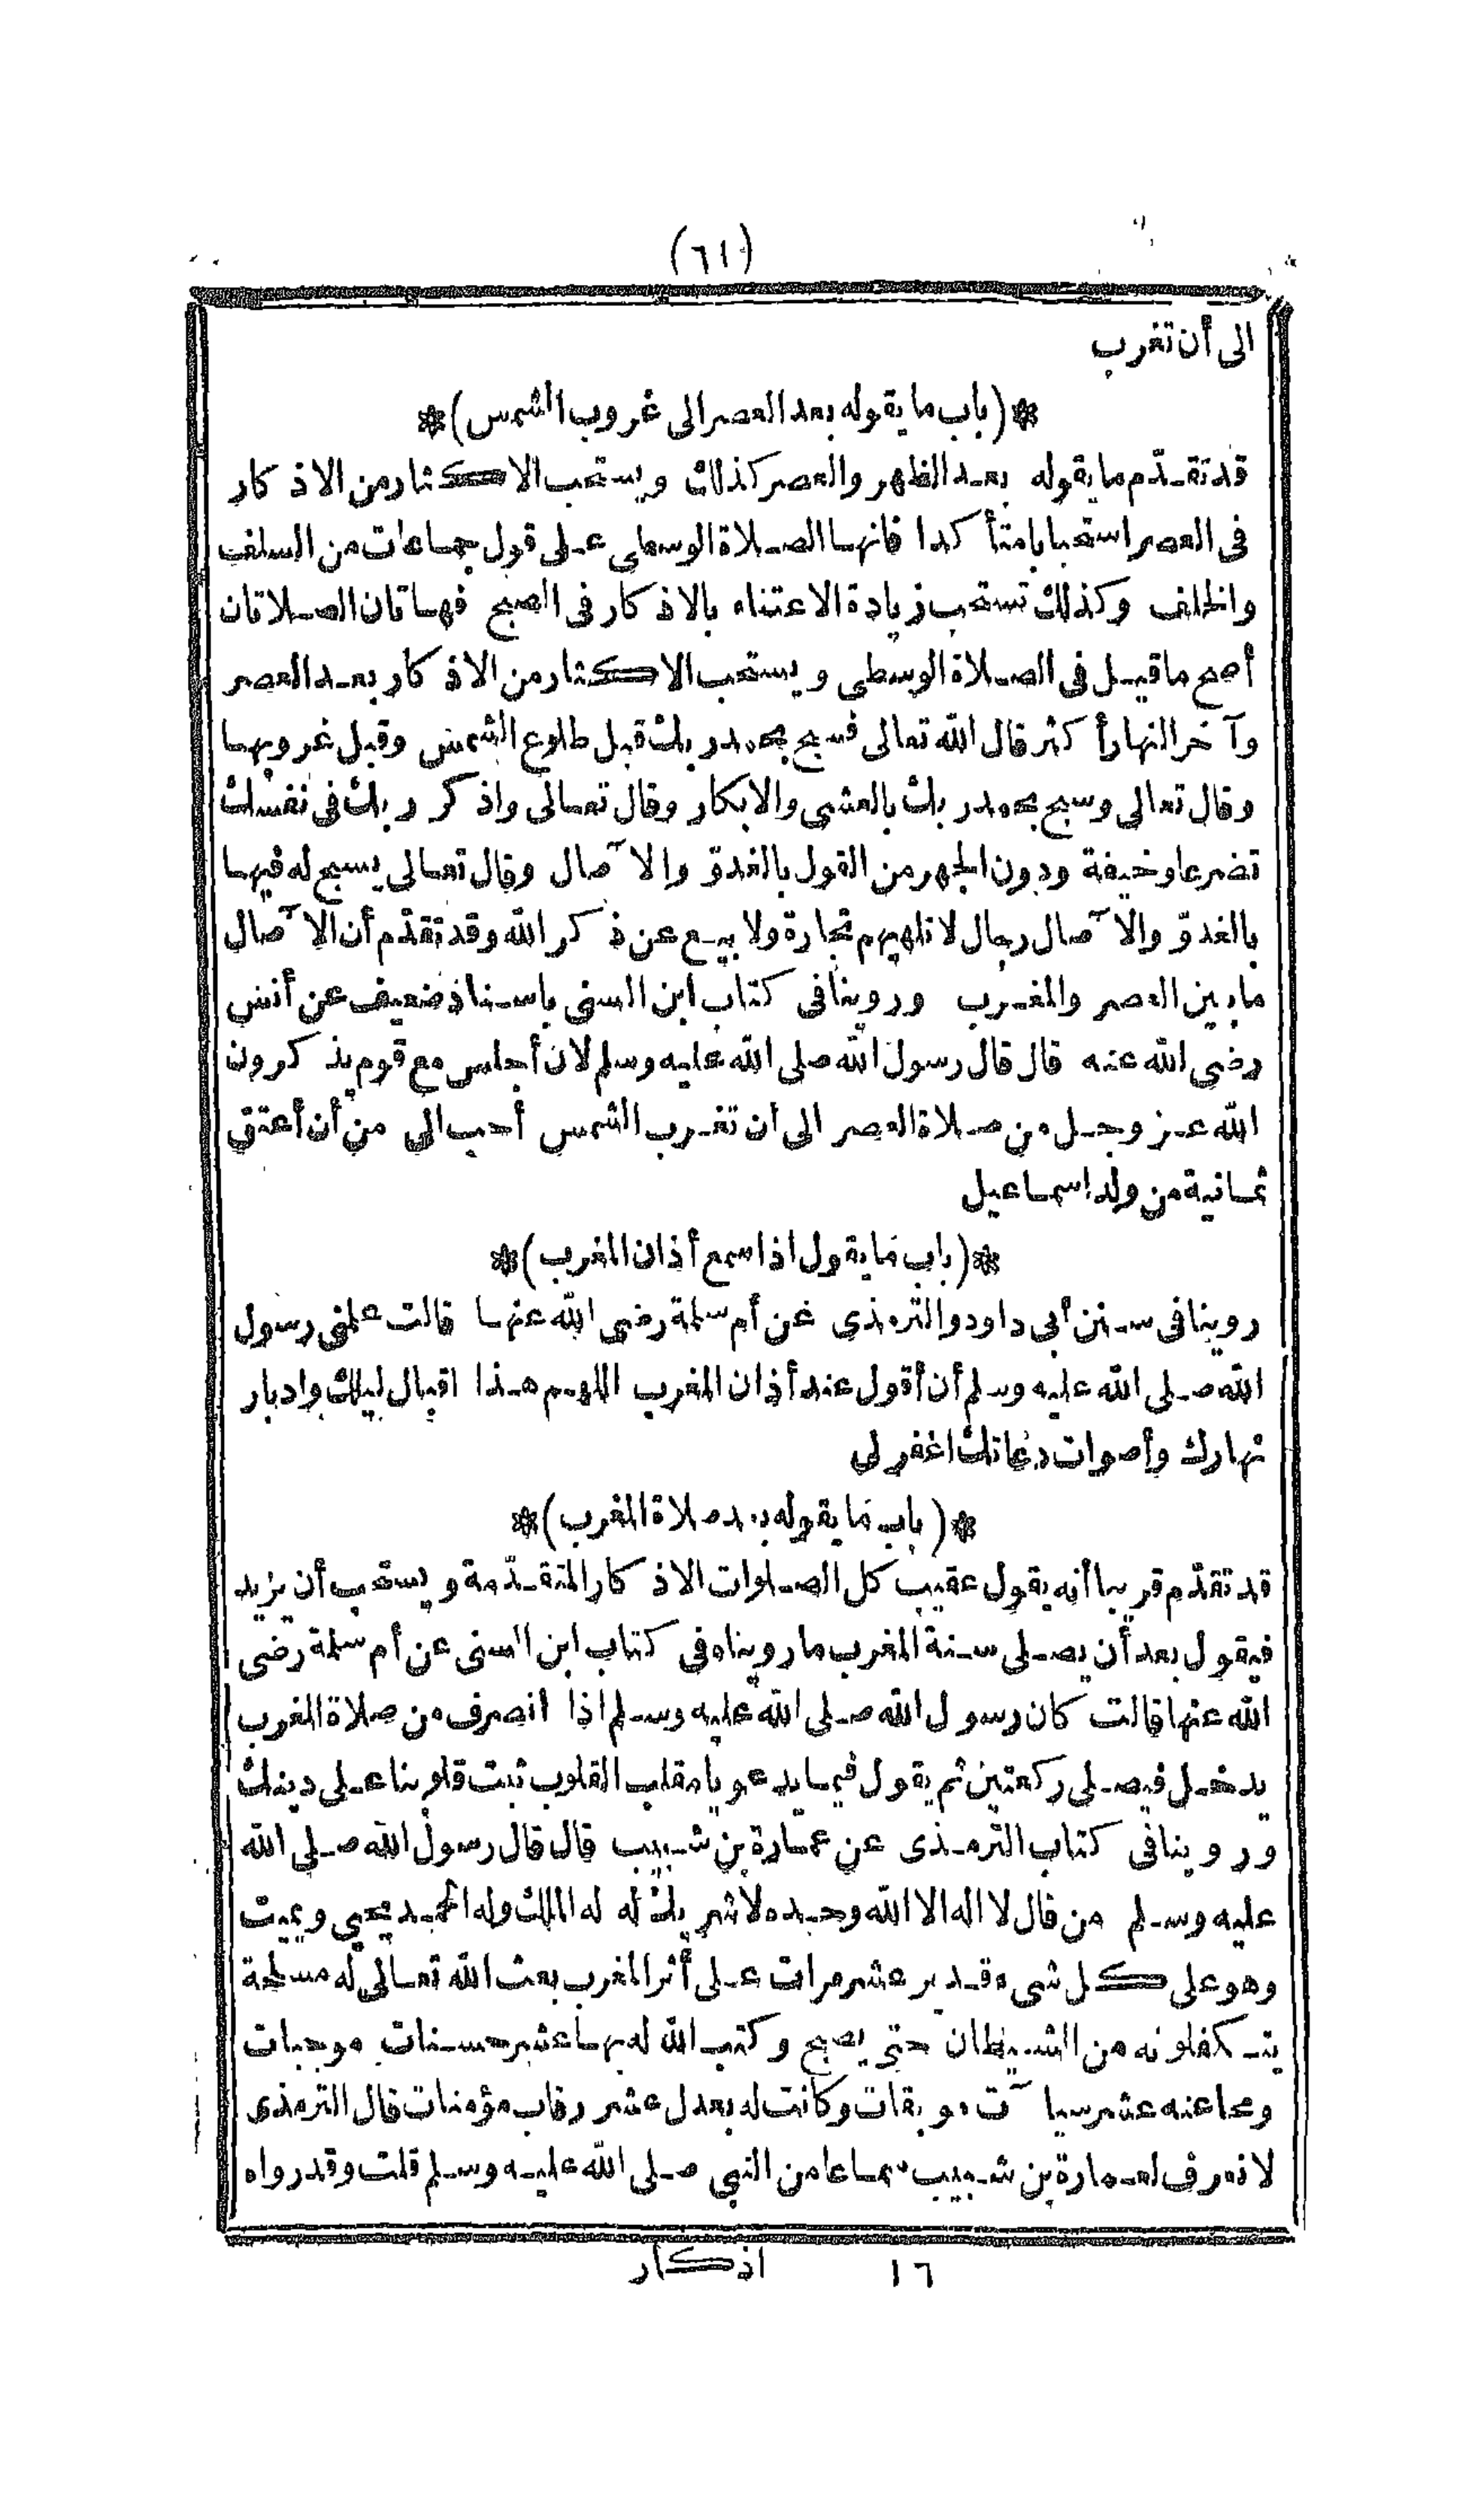 (٦١)
الى أن تغرب
*(باب ما يقوله بعد العصر الى غروب الشمس)*
قد تقدّم ما يقوله بعد الظهر والعصر كذلك ويستحب الاكثار من الاذكار
فى العصر استحبابا متأكدا فانها الصلاة الوسطى على قول جماعات من السلف
والخلف وكذلك تستحب زيادة الاعتناء بالاذكار فى الصبح فهاتان الصلاتان
أصح ما قيل فى الصلاة الوسطى ويستحب الاكثار من الاذكار بعد العصر
وآخر النهار أكثر قال الله تعالى فسبح بحمد ربك قبل طلوع الشمس وقبل غروبها
وقال تعالى وسبح بحمد ربك بالعشى والابكار وقال تعالى واذكر ربك فى نفسك
تضرعا وخيفة ودون الجهر من القول بالغدوّ والآصال وقال تعالى يسبح له فيها
بالغدوّ والآصال رجال لا تلهيهم تجارة ولا بيع عن ذكر الله وقد تقدّم أن الآصال
ما بين العصر والمغرب وروينا فى كتاب ابن السنى باسناد ضعيف عن أنس
رضى الله عنه قال قال رسول الله صلى الله عليه وسلم لان أجلس مع قوم يذكرون
الله عز وجل من صلاة العصر الى أن تغرب الشمس أحب الى من أن أعتق
ثمانية من ولد اسماعيل
*(باب ما يقول اذا سمع أذان المغرب)*
روينا فى سنن أبى داود والترمذى عن أم سلمة رضى الله عنها قالت علمنى رسول
الله صلى الله عليه وسلم أن أقول عند أذان المغرب اللهم هذا اقبال ليلك وادبار
نهارك وأصوات دعاتك اغفر لى
*(باب ما يقوله بعد صلاة المغرب)*
قد تقدّم قريبا أنه يقول عقيب كل الصلوات الاذكار المتقدّمة ويستحب أن يزيد
فيقول بعد أن يصلى سنة المغرب ما رويناه فى كتاب ابن السنى عن أم سلمة رضى
الله عنها قالت كان رسول الله صلى الله عليه وسلم اذا انصرف من صلاة المغرب
يدخل فيصلى ركعتين ثم يقول فيما يدعو يا مقلب القلوب ثبت قلوبنا على دينك
وروينا فى كتاب الترمذى عن عمارة بن شبيب قال قال رسول الله صلى الله
عليه وسلم من قال لا اله الا الله وحده لا شريك له له الملك وله الحمد يحيى ويميت
وهو على كل شىء قدير عشر مرات على أثر المغرب بعث الله تعالى له مسلحة
يتكفلونه من الشيطان حتى يصبح وكتب الله له بها عشر حسنات موجبات
ومحا عنه عشر سيآت موبقات وكانت له بعدل عشر رقاب مؤمنات قال الترمذى
لا نعرف لعمارة بن شبيب سماعا من النبى صلى الله عليه وسلم قلت وقد رواه
١٦ اذكار